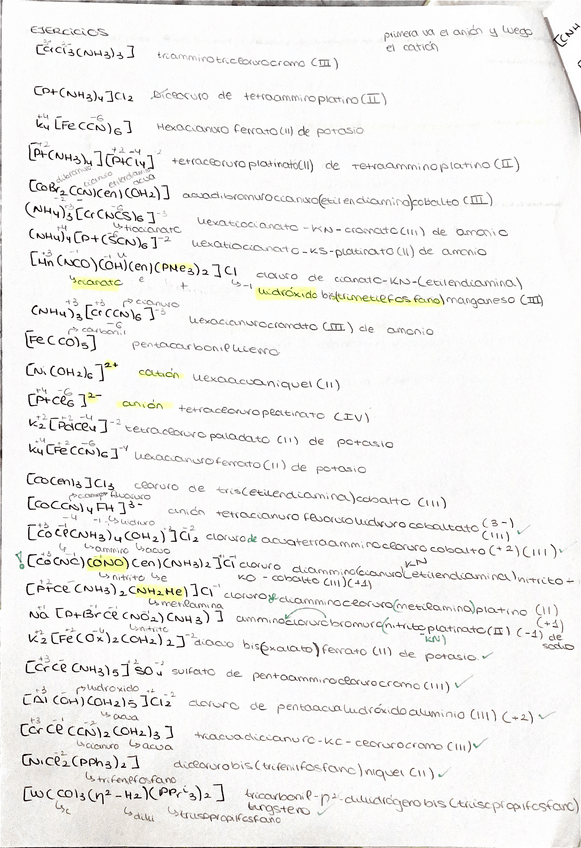 EJERCICIOS
primero va el anión y luego
el catión
[CrCl3(NH3)3] triamminotriclorurocromo (III)
[Pt(NH3)4]Cl2 Dicloruro de tetraamminoplatino (II)
K4[Fe(CN)6] Hexacianuro ferrato (II) de potasio
[Pt(NH3)4][PtCl4] tetracloruro platinato (II) de tetraamminoplatino (II)
dibromuro cianuro etilendiamina acua
[CoBr2(CN)(en)(OH2)] acuadibromurocianuro(etilendiamina)cobalto (III)
(NH4)3[Cr(NCS)6]-3 hexatiocianato-KN-cromato (III) de amonio
tiocianato
(NH4)4[Pt(SCN)6]-2 hexatiocianato-KS-platinato (II) de amonio
[Mn(NCO)(OH)(en)(PMe3)2]Cl cloruro de cianato-KN-(etilendiamina)
cianato hidróxido bis(trimetilfosfano) manganeso (III)
cianuro
(NH4)3[Cr(CN)6]-3 hexacianurocromato (III) de amonio
carbonil
[Fe(CO)5] pentacarbonilhierro
[Ni(OH2)6]2+ catión hexaacuaniquel (II)
[PtCl6]2- anión tetracloruroplatinato (IV)
K2[PdCl4]-2 tetracloruro paladato (II) de potasio
K4[Fe(CN)6]-4 hexacianuroferrato (II) de potasio
[Co(en)3]Cl3 cloruro de tris(etilendiamina)cobalto (III)
[Co(CN)4FH]3- anión tetracianuro fluorurohidruro cobaltato (3-)
hidruro (III)
[CoCl(NH3)4(OH2)]Cl2 cloruro de acuatetraamminocloruro cobalto (+2) (III)
ammino acua
! [Co(NC)(ONO)(en)(NH3)2]Cl cloruro diammino(cianuro)(etilendiamina)nitrito-
nitrito KO-cobalto (III) (+1) KN
[PtCl(NH3)2(NH2Me)]Cl cloruro diamminocloruro(metilamina)platino (II)
metilamina (+1)
Na[PtBrCl(NO2)(NH3)] amminoclorurobromuro(nitrito platinato (II) (-1) de
nitrito KN sodio
K2[Fe(Ox)2(OH2)2]-2 diacuabis(oxalato)ferrato (II) de potasio
[CrCl(NH3)5]SO4 sulfato de pentaamminoclorurocromo (III)
hidróxido
[Al(OH)(OH2)5]Cl2 cloruro de pentaacuahidróxidoaluminio (III) (+2)
acua
[CrCl(CN)2(OH2)3] triacuadicianuro-KC-clorurocromo (III)
cianuro acua
[NiCl2(PPh3)2] diclorurobis(trifenilfosfano)niquel (II)
trifenilfosfano
[W(CO)3(η2-H2)(PPri3)2] tricarbonil-η2-dihidrógenobis(triisopropilfosfano)
tungsteno
c dihi triisopropilfosfano